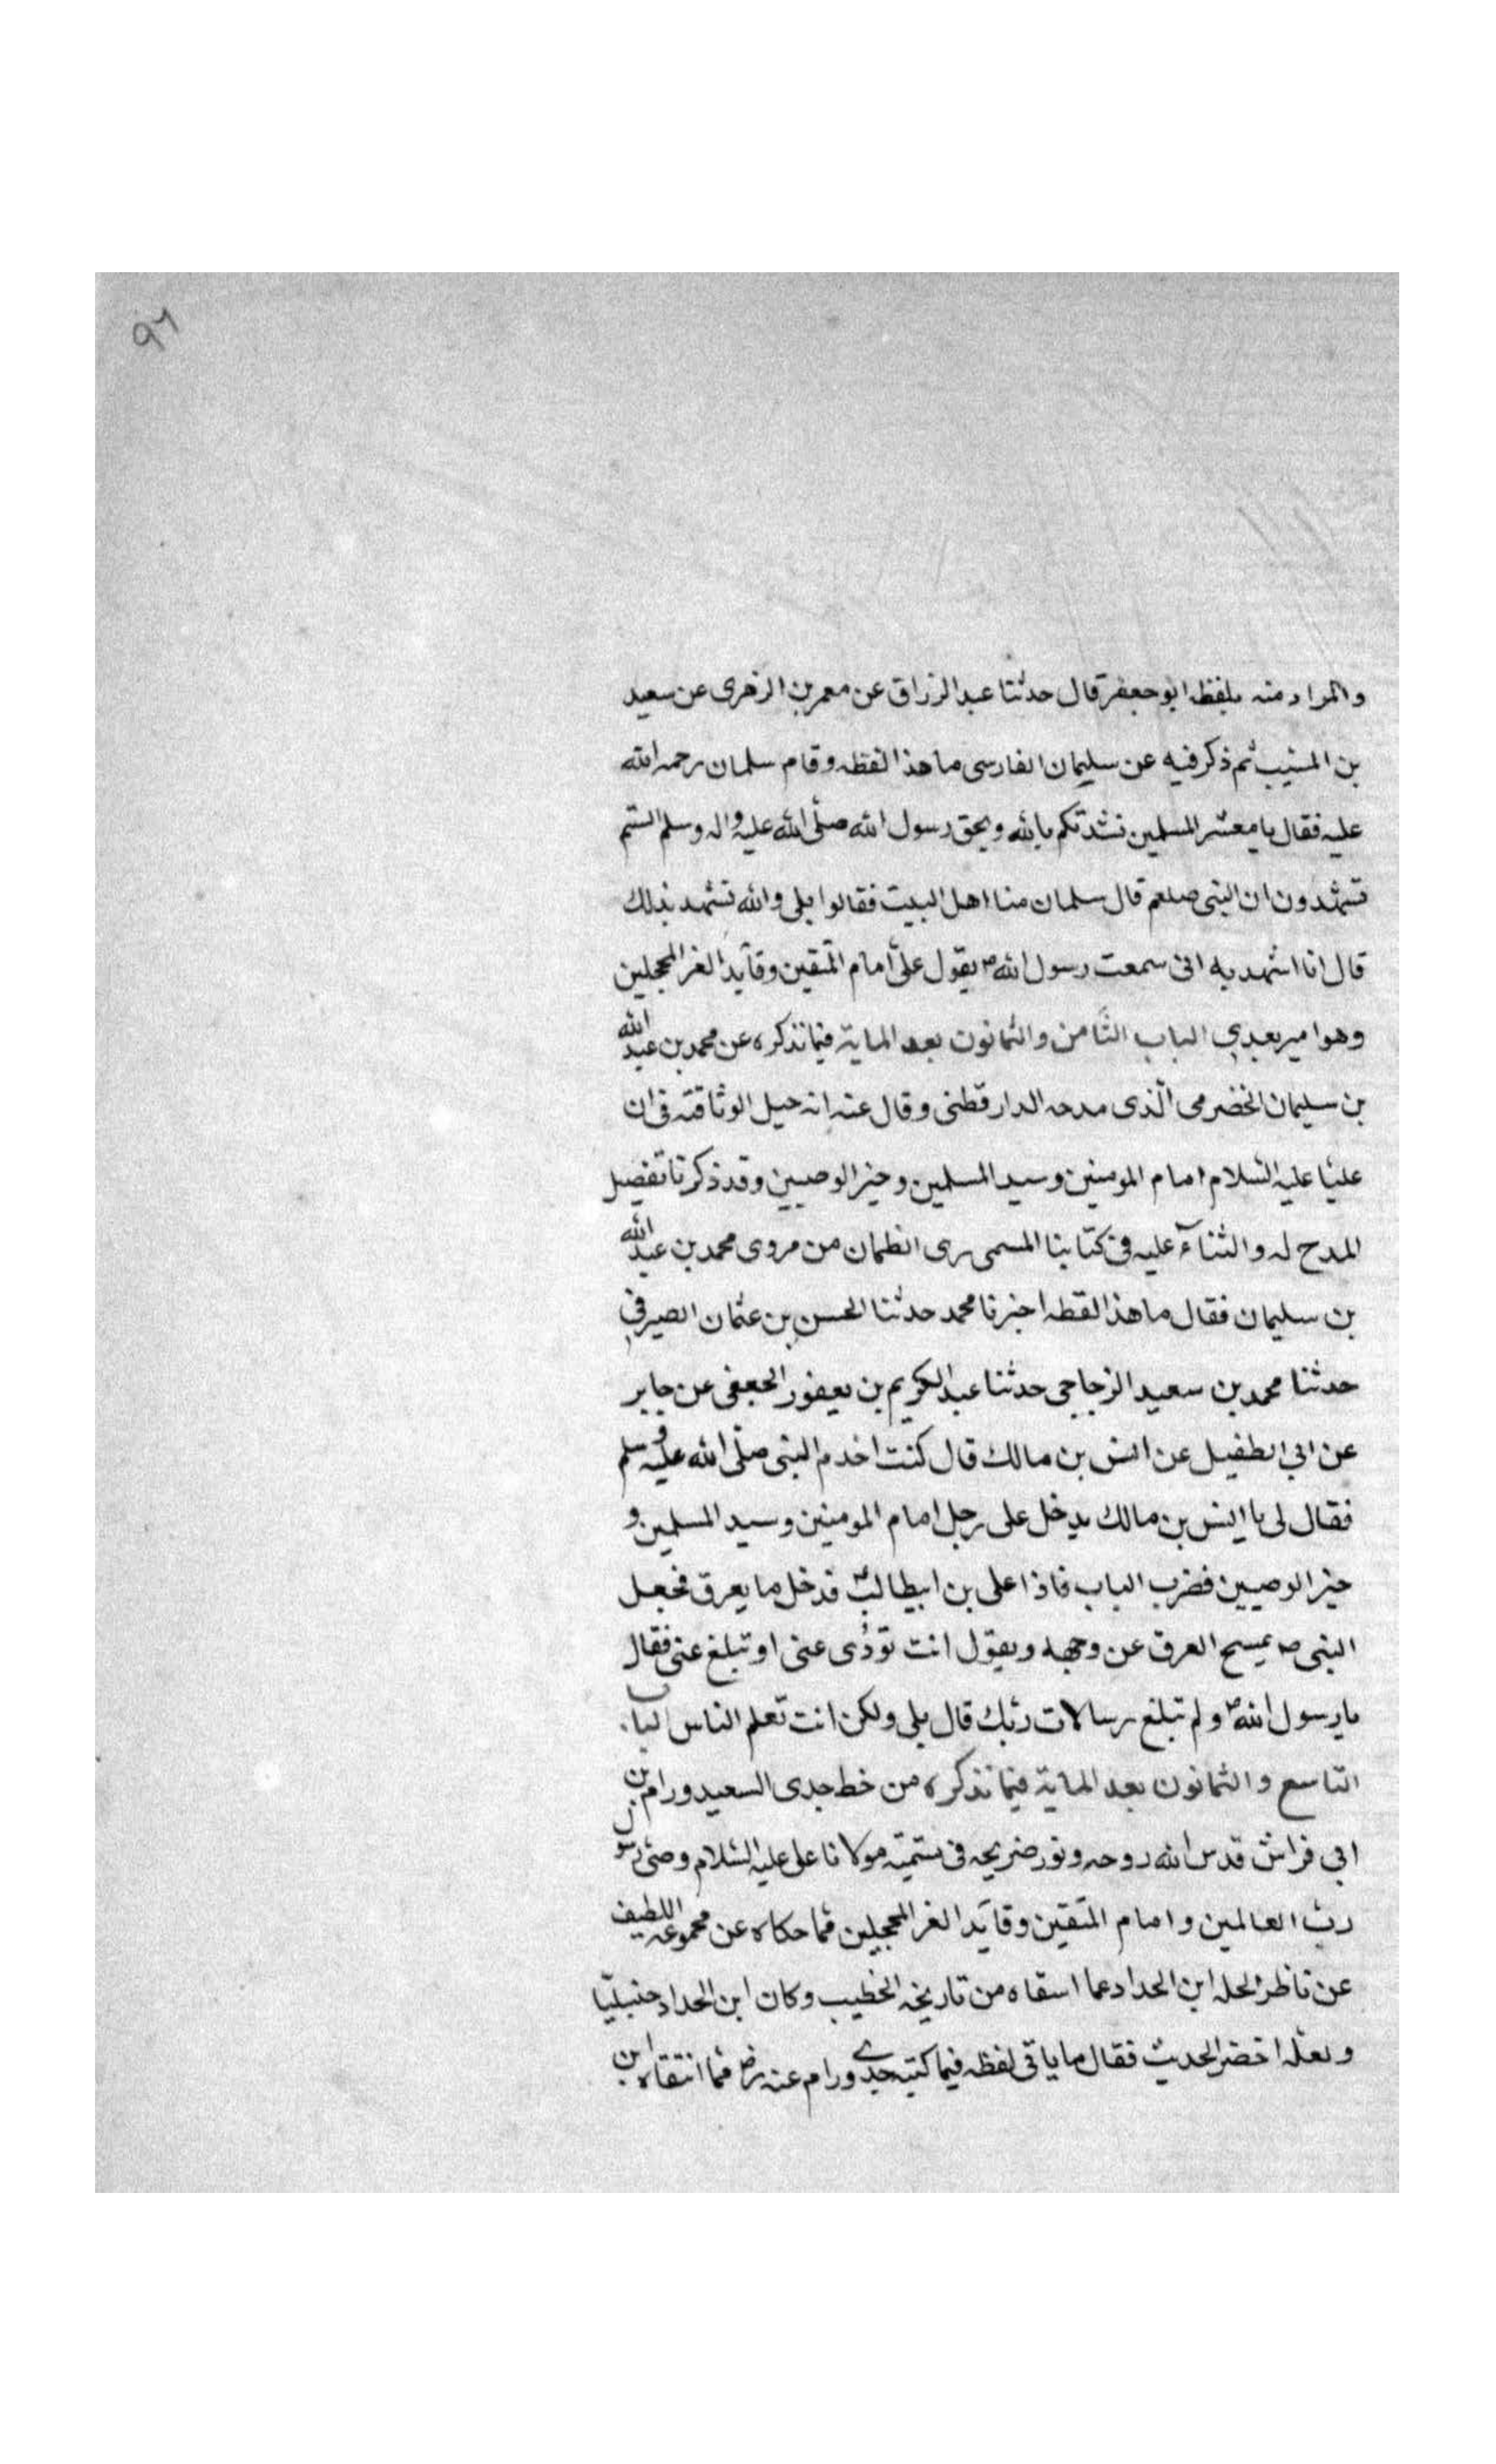 ٩٦
والمراد منه بلفظ ابو جعفر قال حدثنا عبد الرزاق عن معمر بن الزهرى عن سعيد
بن المسيب ثم ذكر فيه عن سليمان الفارسى ما هذا لفظه وقام سلمان رحمه الله
عليه فقال يا معشر المسلمين نشدتكم بالله وبحق رسول الله صلى الله عليه واله وسلم الستم
تشهدون ان النبى صلعم قال سلمان منا اهل البيت فقالوا بلى والله نشهد بذلك
قال انا اشهد به انى سمعت رسول الله ص يقول على امام المتقين وقايد الغر المحجلين
وهو امير بعدي الباب الثامن والثمانون بعد الماية فيما نذكره عن محمد بن عبد الله
بن سليمان الخضرمى الذى مدحه الدارقطنى وقال عنه انه جبل الوثاقته فى ان
عليا عليه السلام امام المومنين وسيد المسلمين وخير الوصيين وقد ذكرنا تفصيل
المدح له والثناء عليه فى كتابنا المسمى برى الظمان من مروى محمد بن عبد الله
بن سليمان فقال ما هذا لفظه اخبرنا محمد حدثنا الحسن بن عثمان الصيرفي
حدثنا محمد بن سعيد الزجاجى حدثنا عبد الكريم بن يعفور الجعفى عن جابر
عن ابي الطفيل عن انس بن مالك قال كنت اخدم النبى صلى الله عليه وسلم
فقال لى يا انيس بن مالك يدخل على رجل امام المومنين وسيد المسلمين و
خير الوصيين فضرب الباب فاذا على بن ابيطالب قد خل ما يعرق فجعل
النبى ص يمسح العرق عن وجهه ويقول انت تودى عنى او تبلغ عنى فقال
يا رسول الله ص ولم تبلغ رسالات ربك قال بلى ولكن انت تعلم الناس الباب
التاسع والثمانون بعد الماية فيما نذكره من خط جدى السعيد ورام بن
ابي فراش قدس الله روحه ونور ضريحه فى تسمية مولانا على عليه السلام وصى رسول
رب العالمين وامام المتقين وقايد الغر المحجلين مما حكاه عن مجموعه اللطيف
عن ناظر الحله ابن الحداد عما اسقاه من تاريخه الخطيب وكان ابن الحداد حنبليا
ولعله اختصر الحديث فقال ما ياتى لفظه فيما كتبه جدي ورام عنه رض مما انتقاه ابن